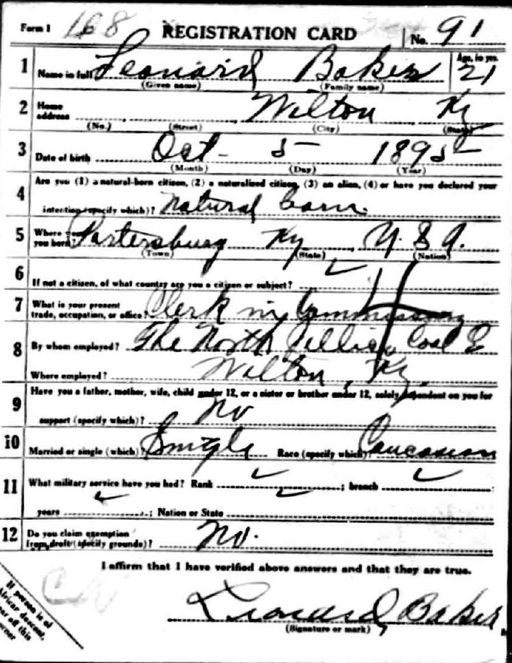 Form 1 168 REGISTRATION CARD No. 91
1 Name in full Leonard Baker Age, in yrs. 21
(Given name) (Family name)
2 Home address Wilton Ky
(No.) (Street) (City) (State)
3 Date of birth Oct - 5 - 1895
(Month) (Day) (Year)
4 Are you (1) a natural-born citizen, (2) a naturalized citizen, (3) an alien, (4) or have you declared your
intention (specify which)? Natural born
5 Where were you born? Ky U.S.A.
(Town) (State) (Nation)
6 If not a citizen, of what country are you a citizen or subject?
7 What is your present trade, occupation, or office? Clerk in Commissary
8 By whom employed? The North Jellico Coal
Where employed? Wilton, Ky.
9 Have you a father, mother, wife, child under 12, or a sister or brother under 12, solely dependent on you for
support (specify which)? No
10 Married or single (which)? Single Race (specify which)? Caucasian
11 What military service have you had? Rank ; branch
years ; Nation or State
12 Do you claim exemption from draft (specify grounds)? No.
I affirm that I have verified above answers and that they are true.
Leonard Baker
(Signature or mark)
If person is of
African descent,
off this
corner